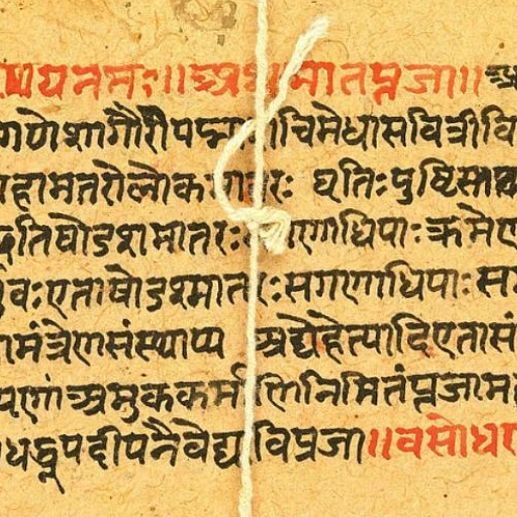 यनमः॥अथमातृपूजा॥अ
गणेशागौरीपद्मा चिमेधासवित्रीवि
हामतरोलोकमातरः धृतिःपुष्टि
तिषोडशमातरः गणाधिपाः क्रमे
वःएताषोडश्मातरःसगणाधिपाः स
मंत्रेणसंस्थाप्य अद्येहेत्यादिएतासं
अमुककर्मणिनिमितंपूजाम
धूपदीपनैवेद्याविपूजा॥वसोध